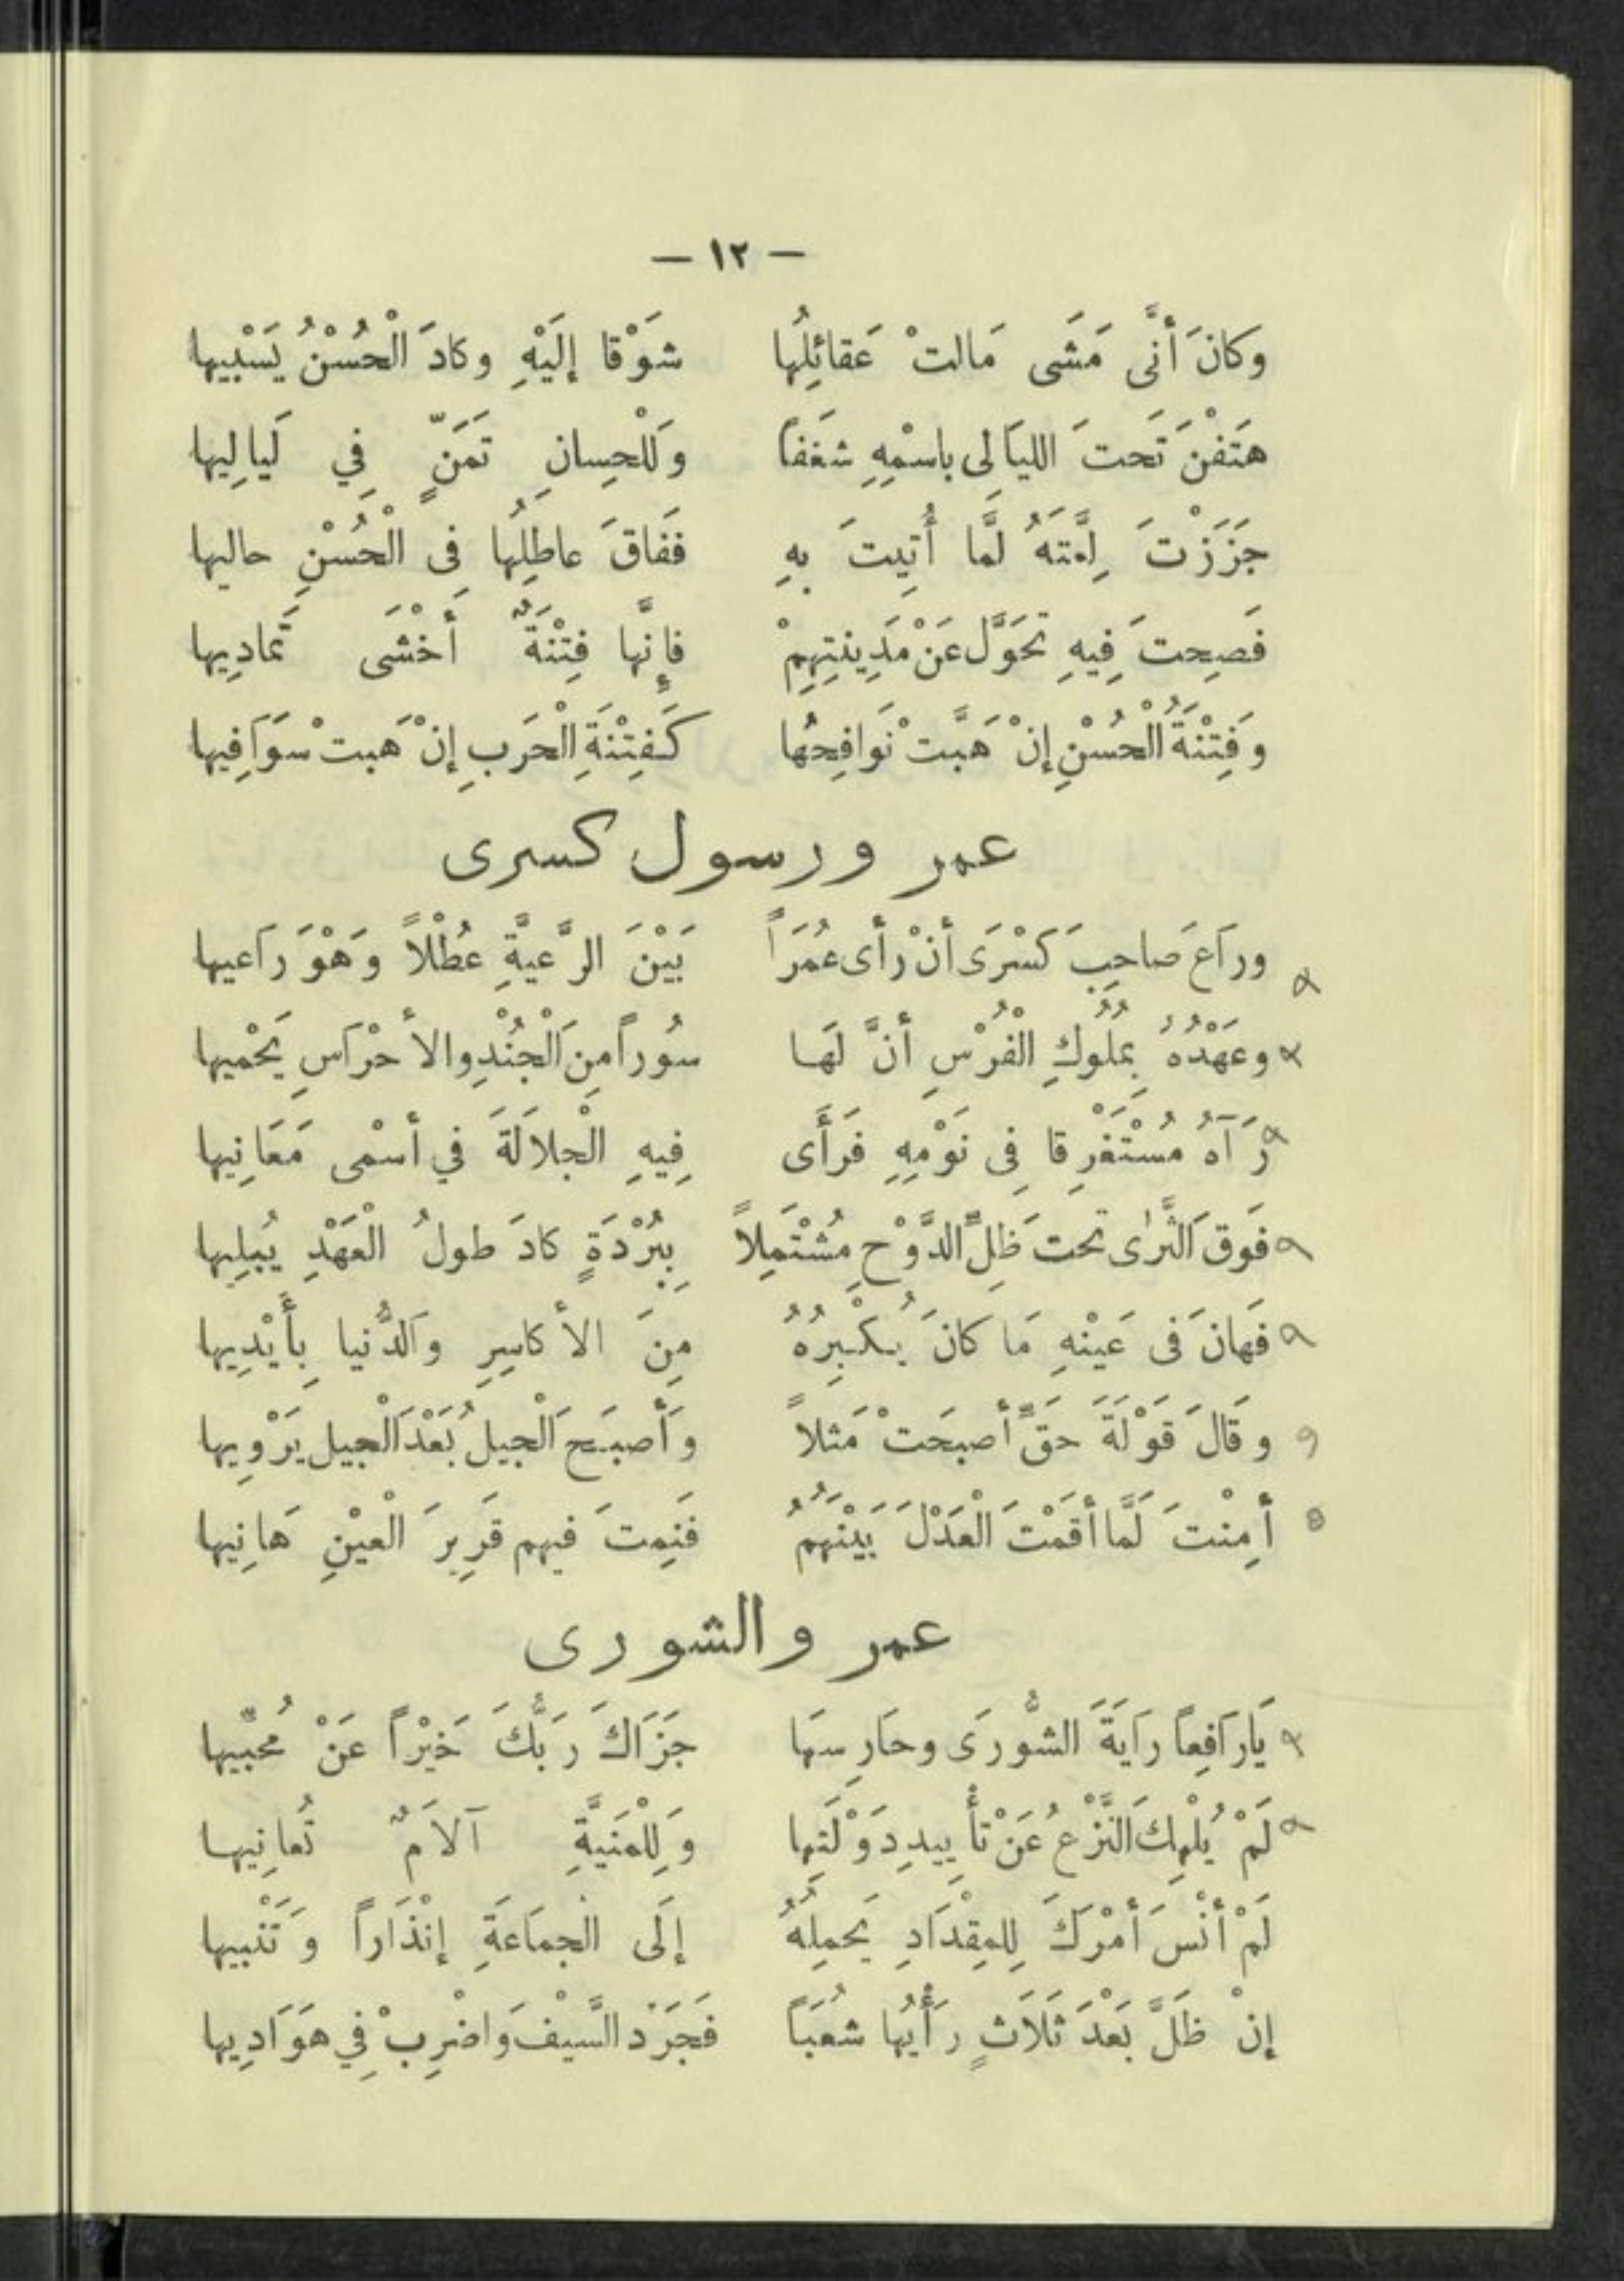 — ١٢ —
وكانَ أنَّى مَشَى مَالتْ عَقائِلُها شَوْقا إلَيْهِ وكادَ الْحُسْنُ يَسْبيها
هَتَفْنَ تَحتَ الليَالى باسْمِهِ شَغَفاً وَللْحِسانِ تَمَنٍّ فِي لَيالِيها
جَزَزْتَ لِمَّتَهُ لَّما أُتِيتَ بهِ فَفَاقَ عاطِلُها فِى الْحُسْنِ حاليها
فَصِحتَ فِيهِ تَحَوَّل عَنْ مَدِينتِهِمْ فإِنَّها فِتْنَةٌ أَخْشَى تَمادِيها
وَفِتْنَةُ الْحُسْنِ إنْ هَبَّتْ نَوافِحُها كَفِتْنَةِ الْحَربِ إنْ هَبتْ سوَافِيها
عمر ورسول كسرى
ورَاعَ صاحِبَ كَسْرَى أنْ رأى عُمَرَاً بَيْنَ الرَّعيَّةِ عُطْلاً وَهْوَ رَاعيها
وعَهْدُهُ بِمُلُوكِ الْفُرْسِ أنَّ لَهَا سُوراً مِنَ الْجُنْدِ والأحْرَاسِ يَحْميها
رَآهُ مُسْتَغْرِقا فِى نَوْمِهِ فَرَأَى فِيهِ الْجلالَةَ في أسْمى مَعَانِيها
فَوقَ الثَّرٰى تحتَ ظِلِّ الدَّوْحِ مُشْتَمِلاً بِبُرْدَةٍ كادَ طولُ الْعَهْدِ يُبلِيها
فَهانَ فى عَيْنْهِ مَا كانَ يُكْبِرُهُ مِنَ الأكاسِرِ والدُّنيا بِأَيْدِيها
وقَالَ قَوْلَةَ حَقٍّ أصبحَتْ مَثلاً وَأصبَحَ الْجيلُ بَعْدَ الْجيل يَرْوِيها
أمِنْتَ لَمَّا أقَمْتَ الْعَدْلَ بَيْنَهُمُ فَنِمتَ فيهم قَرِيرَ الْعيْنِ هَانِيها
عمر والشورى
يَارَافِعاً رَايَةَ الشُّورَى وحَارِسهَا جَزَاكَ رَبُّكَ خَيْراً عَنْ مُحبِّيها
لَمْ يُلْهِكَ النَّزْعُ عَنْ تأْييدِ دَوْلَتِها وَلِلْمَنيَّةِ آلامٌ تُعانِيها
لَمْ أنْسَ أمْرَكَ لِلمِقْدَادِ يَحمِلُهُ إلَى الْجمَاعَةِ إنْذَاراً وَتَنْبيها
إنْ ظَلَّ بَعْدَ ثَلاَثٍ رَأْيُها شُعَبَاً فَجَرِّد السَّيْفَ وَاضْرِبْ فِي هَوَادِيها